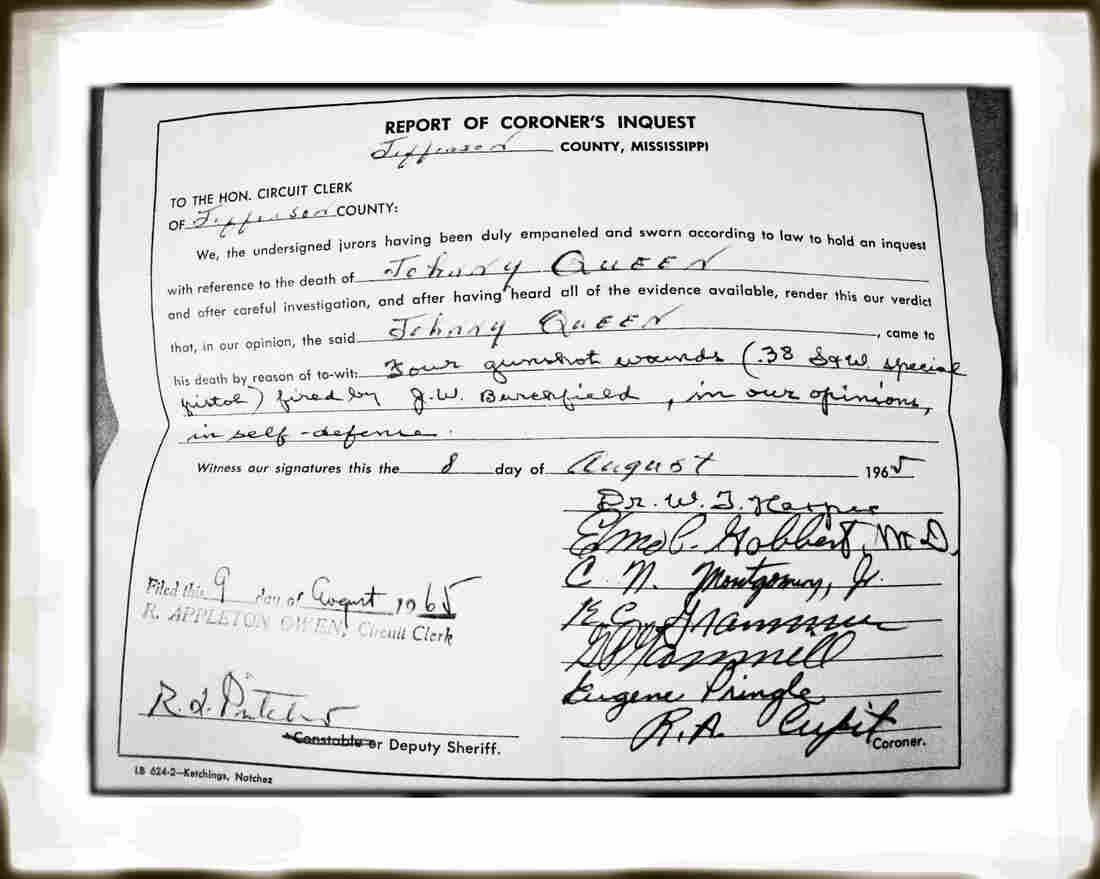 REPORT OF CORONER'S INQUEST
Jefferson COUNTY, MISSISSIPPI
TO THE HON. CIRCUIT CLERK
OF Jefferson COUNTY:
We, the undersigned jurors having been duly empaneled and sworn according to law to hold an inquest
with reference to the death of Johnny QUEEN
and after careful investigation, and after having heard all of the evidence available, render this our verdict
that, in our opinion, the said Johnny QUEEN, came to
his death by reason of to-wit: Four gunshot wounds (.38 S&W special
pistol) fired by J.W. Burchfield, in our opinions,
in self-defense.
Witness our signatures this the 8 day of August 1965
Dr. W. T. Harper
Elmo C. Gabbert, M.D.
C. N. Montgomery, Jr.
R. E. Grammer
Eugene Pringle
R.A. Cupit
Coroner.
Filed this 9 day of August 1965
R. APPLETON OWEN, Circuit Clerk
Constable or Deputy Sheriff.
LB 624-2—Ketchings, Natchez